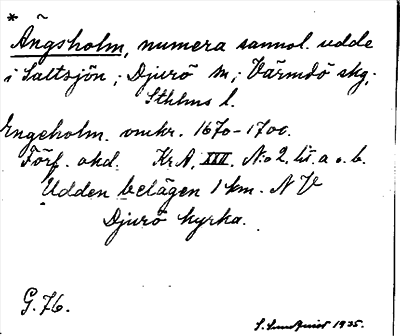 * Ängsholm, numera sannol. udde
i Saltsjön; Djurö sn; Värmdö skg,
Sthlms l.
Engeholm. omkr. 1670-1700.
Förf. okd. Kr.A, XXI. N:o 2, lit. a o. b.
Udden belägen 1 km. N V
Djurö kyrka.
G. 76.
S. Lundquist 1935.